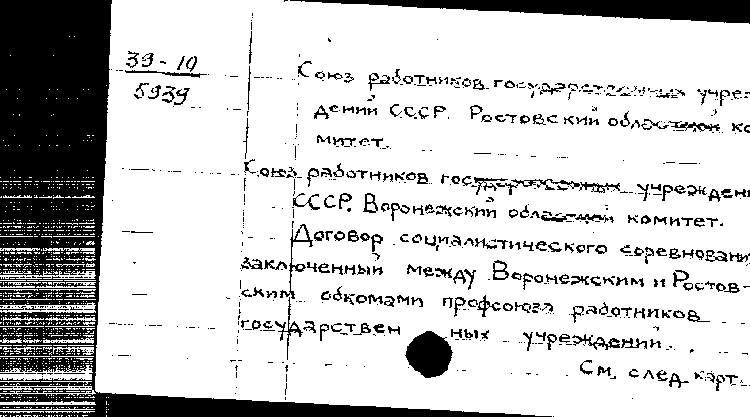 39-10
5939
Союз работников государственных учреж-
дений СССР. Ростовский областной ко-
митет.
Союз работников государственных учреждени
СССР. Воронежский областной комитет.
Договор социалистического соревновани
заключенный между Воронежским и Ростов-
ским обкомами профсоюза работников
государствен ных учреждений.
См. след. карт.